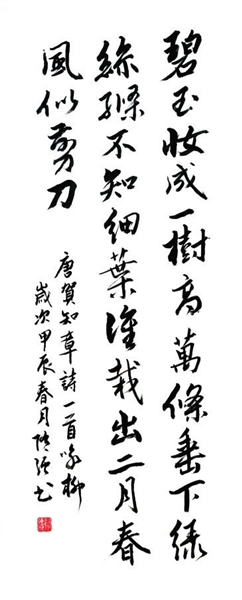 碧玉妝成一樹高萬條垂下緑
絲絛不知細葉誰裁出二月春
風似剪刀
唐賀知章詩一首咏柳
歲次甲辰春月书